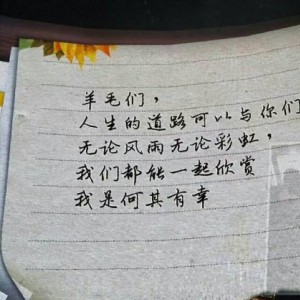 羊毛们，
人生的道路可以与你们
无论风雨无论彩虹，
我们都能一起欣赏
我是何其有幸